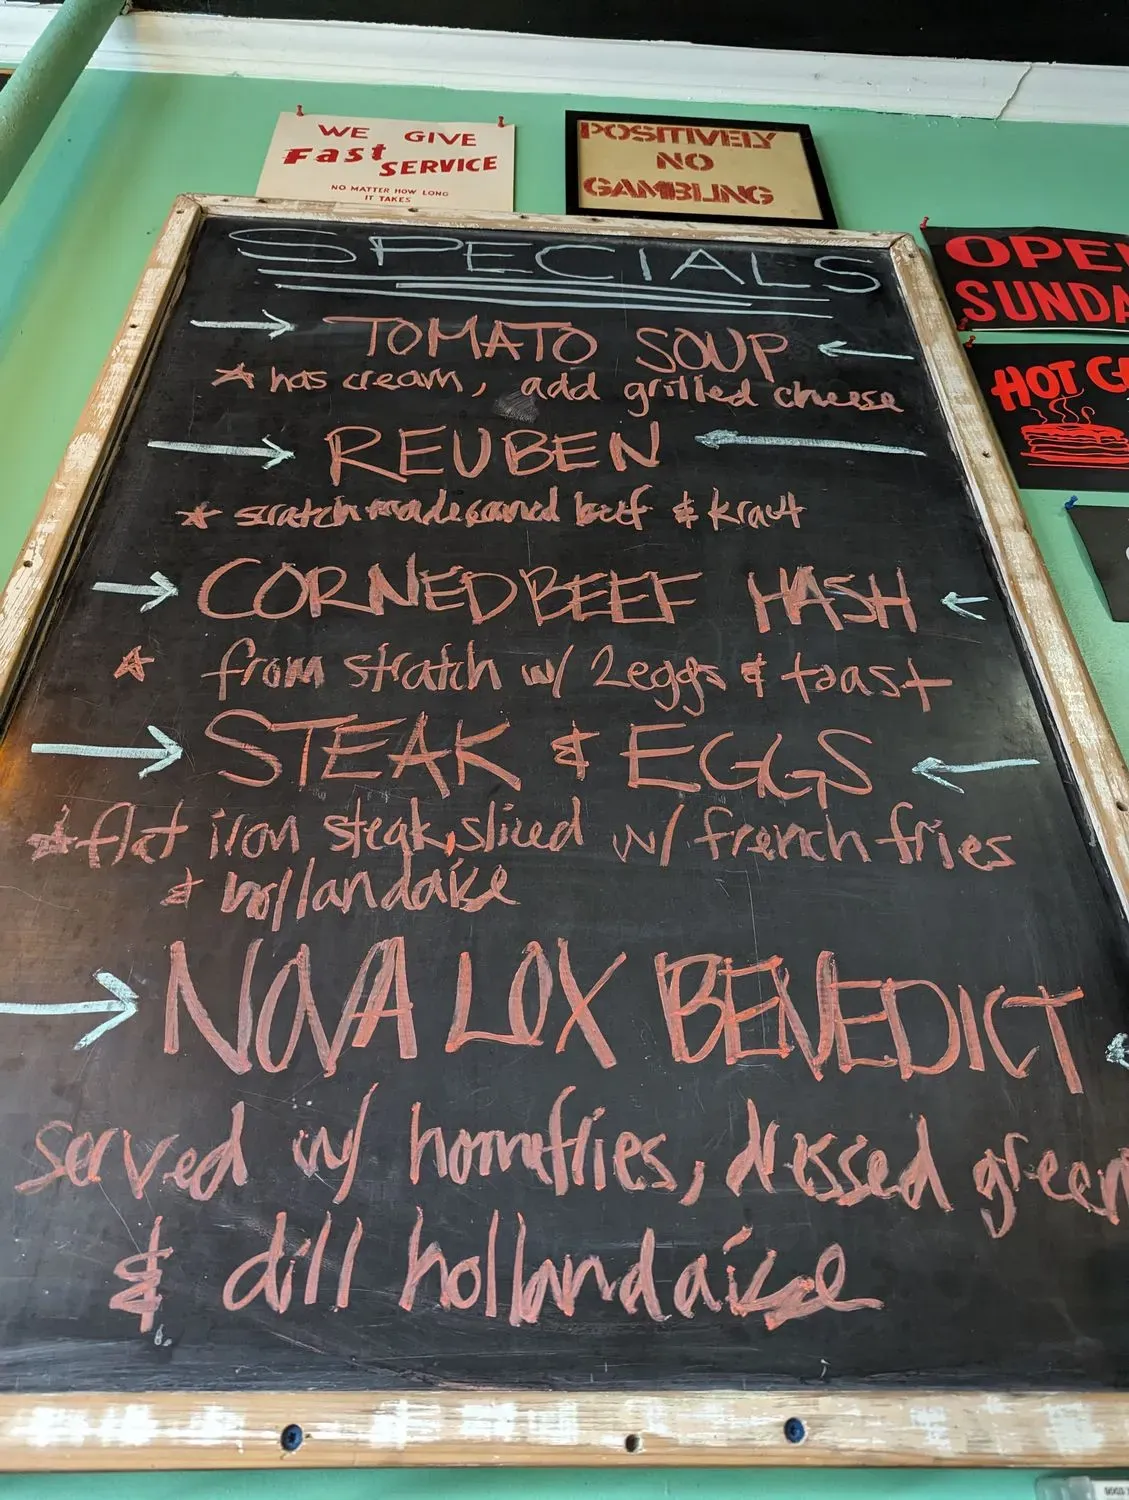 WE GIVE
Fast SERVICE
NO MATTER HOW LONG
IT TAKES
POSITIVELY
NO
GAMBLING
OPE
SUNDA
HOT C
SPECIALS
→ TOMATO SOUP ←
* has cream, add grilled cheese
→ REUBEN ←
* scratch made corned beef & kraut
→ CORNED BEEF HASH ←
* from stratch w/ 2 eggs & toast
→ STEAK & EGGS ←
* flat iron steak, sliced w/ french fries
& hollandaise
→ NOVA LOX BENEDICT
served w/ homefries, dressed green
& dill hollandaise